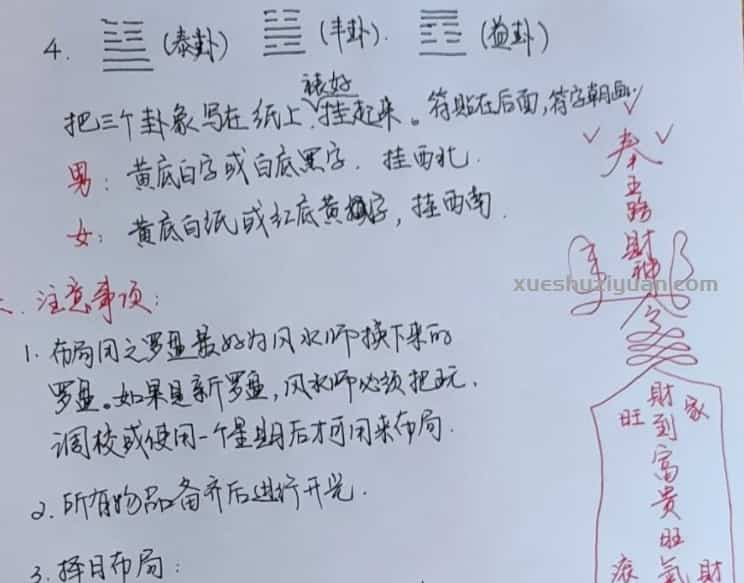 4. (泰卦) (丰卦). (益卦)
裱好
把三个卦象写在纸上,挂起来。符贴在后面,符字朝画.
男: 黄底白字或白底黑字. 挂西北.
女: 黄底白纸或红底黄字, 挂西南.
、注意事项:
1. 布局用之罗盘最好为风水师换下来的
罗盘。如果是新罗盘,风水师必须把玩、
调校或使用一个星期后才可用来布局.
2. 所有物品备齐后进行开光.
3. 择日布局:
奉
五
路
財
神
令
旺 財 家
到
富
貴
旺
氣 財
xueshuziyuan.com